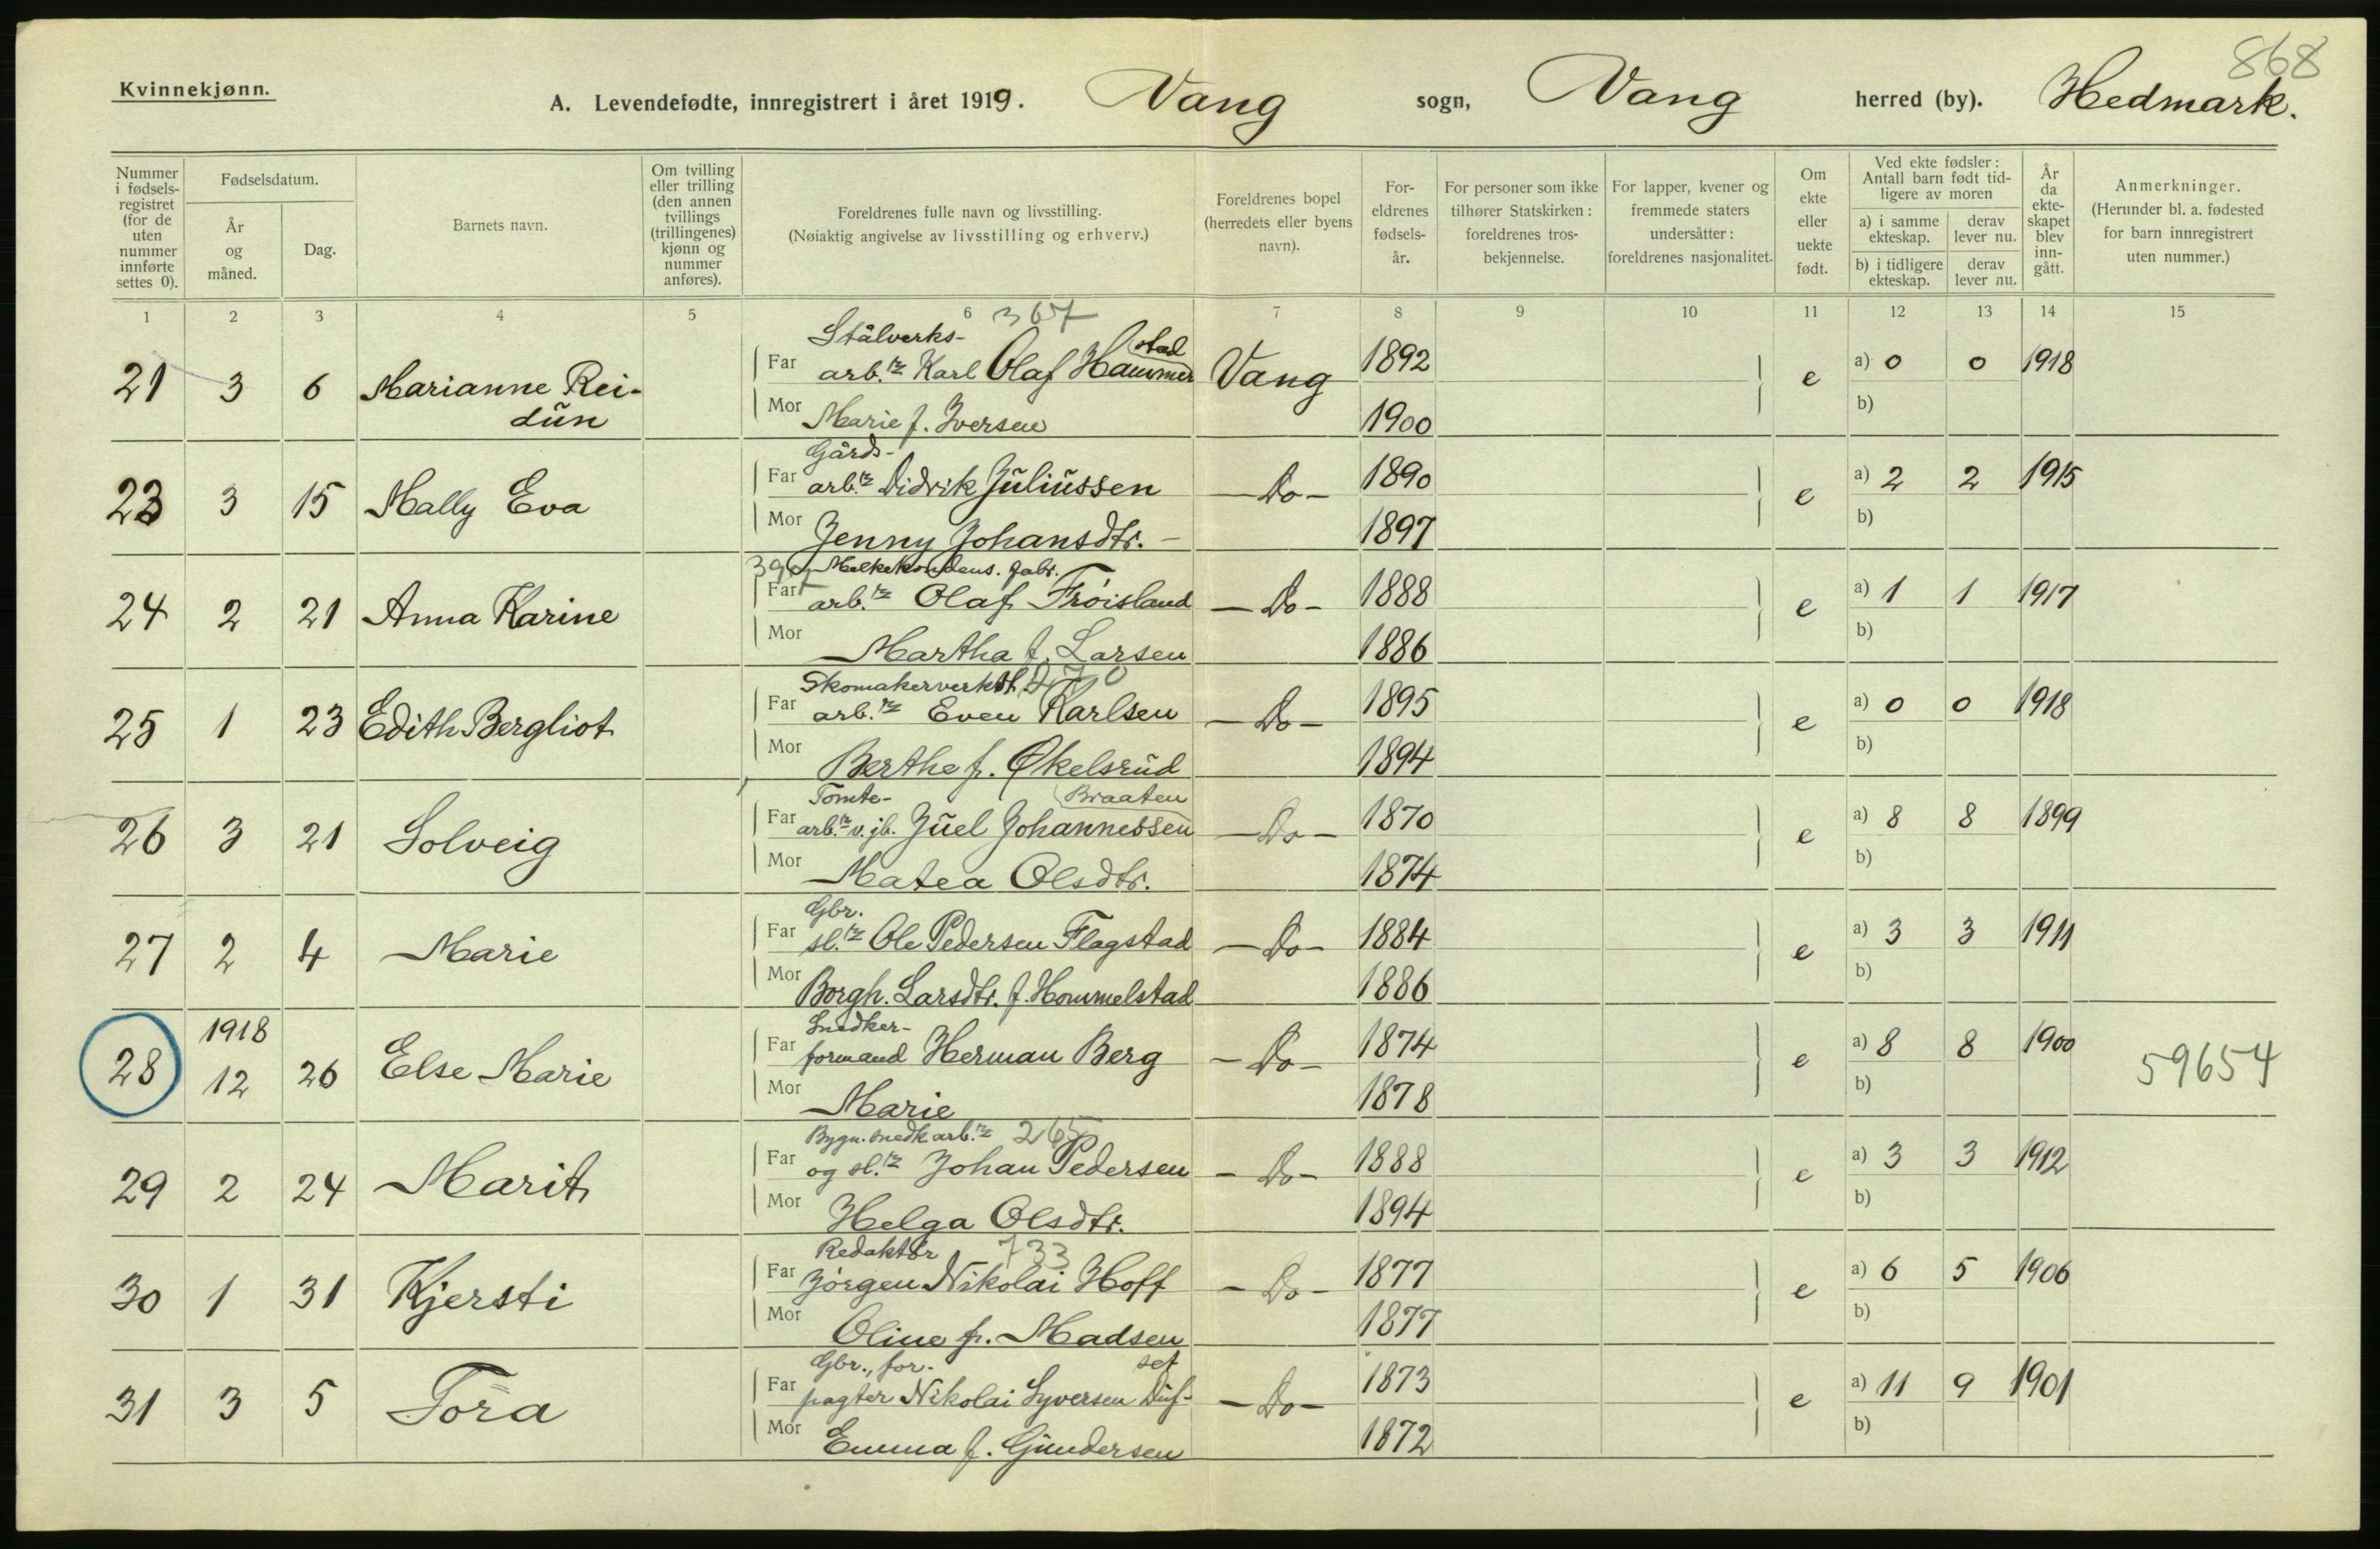 868
Kvinnekjønn.
A. Levendefødte, innregistrert i året 1919. Vang sogn, Vang herred (by). Hedmark.
Nummer i fødsels-registret (for de uten nummer innførte settes 0).
Fødselsdatum.
År og måned.
Dag.
Barnets navn.
Om tvilling eller trilling (den annen tvillings (trillingenes) kjønn og nummer anføres).
Foreldrenes fulle navn og livsstilling.
(Nøiaktig angivelse av livsstilling og erhverv.)
Foreldrenes bopel (herredets eller byens navn).
For-eldrenes fødsels-år.
For personer som ikke tilhører Statskirken: foreldrenes tros-bekjennelse.
For lapper, kvener og fremmede staters undersåtter: foreldrenes nasjonalitet.
Om ekte eller uekte født.
Ved ekte fødsler: Antall barn født tid-ligere av moren
a) i samme ekteskap. derav lever nu.
b) i tidligere ekteskap. derav lever nu.
År da ekte-skapet blev inn-gått.
Anmerkninger.
(Herunder bl. a. fødested for barn innregistrert uten nummer.)
1 2 3 4 5 6 7 8 9 10 11 12 13 14 15
367
Stålverks- stad
21 3 6 Marianne Rei- Far arb.r Karl Olaf Hammer Vang 1892 e a) 0 0 1918
dun Mor Marie f. Iversen 1900 b)
Gårds-
23 3 15 Mally Eva Far arb.r Didrik Juliussen - Do - 1890 e a) 2 2 1915
Mor Jenny Johansdtr. - 1897 b)
Melkekondens. fabr.
24 2 21 Anna Karine Far arb.r Olaf Frøisland - Do - 1888 e a) 1 1 1917
Mor Martha f. Larsen 1886 b)
Skomakerverkst.
25 1 23 Edith Bergliot Far arb.r Even Karlsen - Do - 1895 e a) 0 0 1918
Mor Berthe f. Økelsrud 1894 b)
Tomte- Braaten
26 3 21 Solveig Far arb.r v. jb. Juel Johannessen - Do - 1870 e a) 8 8 1899
Mor Matea Olsdtr. 1874 b)
Gbr.
27 2 4 Marie Far sl.r Ole Pedersen Flagstad - Do - 1884 e a) 3 3 1911
Mor Borgh. Larsdtr. f. Hommelstad 1886 b)
1918 Snedker-
28 12 26 Else Marie Far formand Herman Berg - Do - 1874 e a) 8 8 1900 59654
Mor Marie 1878 b)
Bygn. snedk arb.r 265
29 2 24 Marit Far og sl.r Johan Pedersen - Do - 1888 e a) 3 3 1912
Mor Helga Olsdtr. 1894 b)
Redaktør 733
30 1 31 Kjersti Far Jørgen Nikolai Hoff - Do - 1877 e a) 6 5 1906
Mor Oline f. Madsen 1877 b)
Gbr., for- set
31 3 5 Tora Far pagter Nikolai Syversen Duf- - Do - 1873 e a) 11 9 1901
Mor Emma f. Gundersen 1872 b)